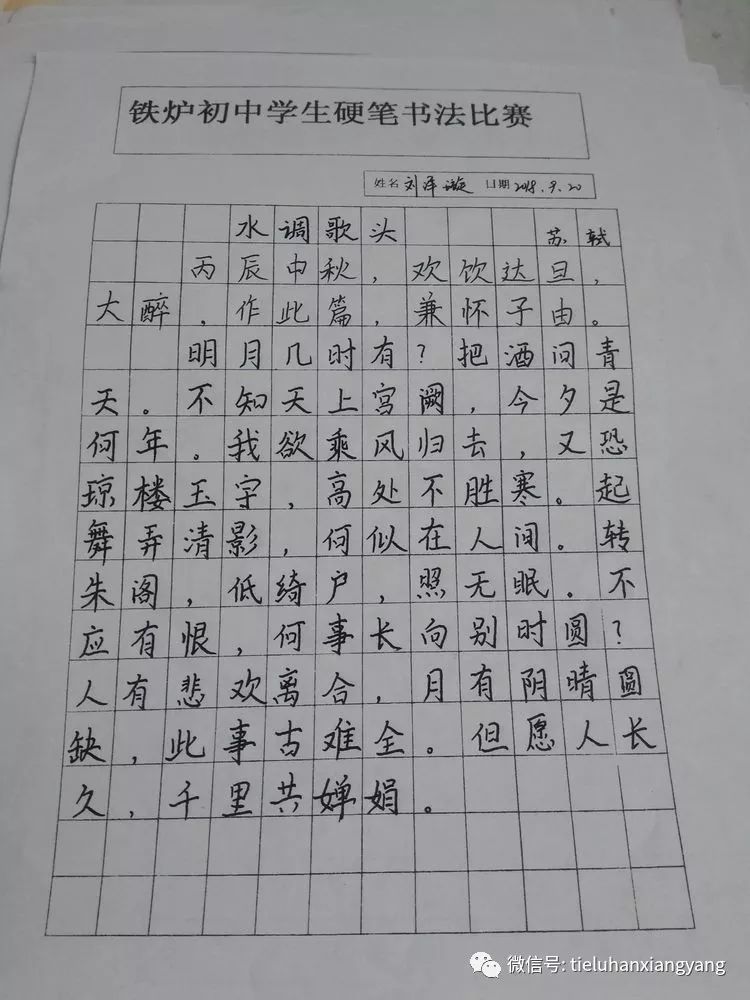 铁炉初中学生硬笔书法比赛
姓名 刘泽漩 日期 2018.9.20
水调歌头 苏轼
丙辰中秋，欢饮达旦，
大醉，作此篇，兼怀子由。
明月几时有？把酒问青
天。不知天上宫阙，今夕是
何年。我欲乘风归去，又恐
琼楼玉宇，高处不胜寒。起
舞弄清影，何似在人间。转
朱阁，低绮户，照无眠。不
应有恨，何事长向别时圆？
人有悲欢离合，月有阴晴圆
缺，此事古难全。但愿人长
久，千里共婵娟。
微信号: tieluhanxiangyang